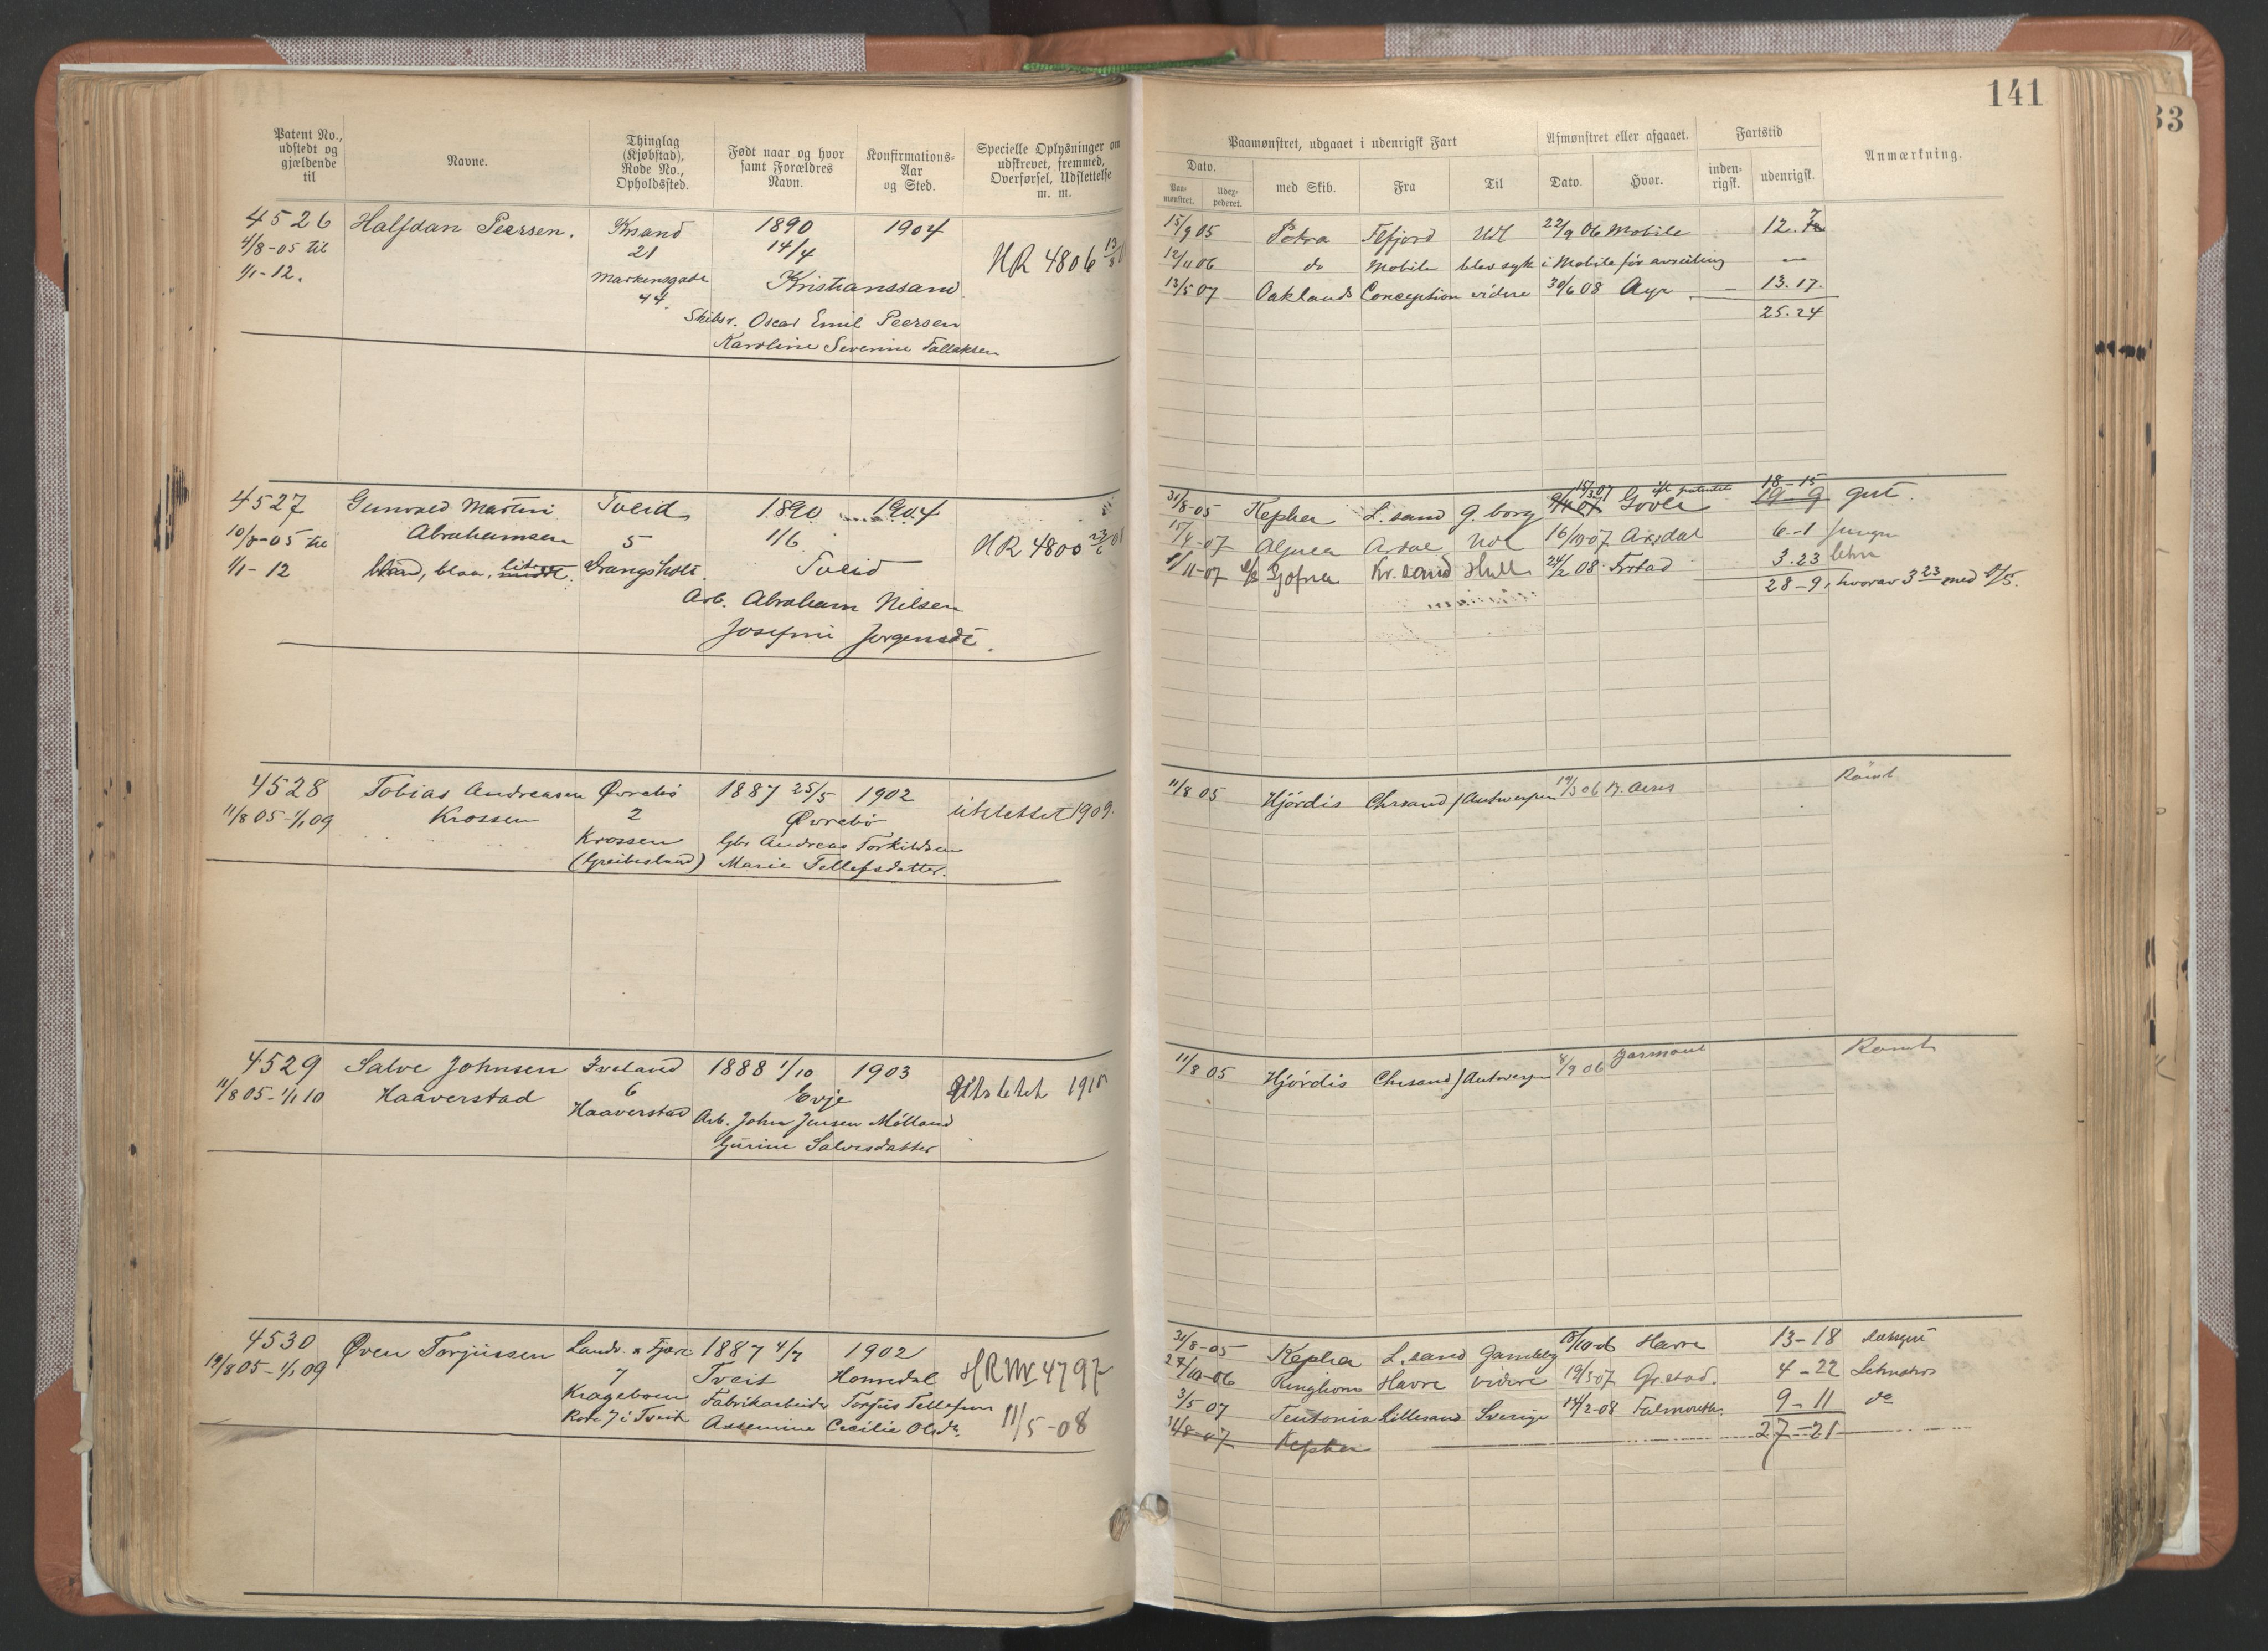 141
33
Patent No., udstedt og gjældende til
Navne.
Thinglag (Kjøbstad), Rode No., Opholdssted.
Født naar og hvor samt Forældres Navn.
Konfirmations-Aar og Sted.
Specielle Oplysninger om udskrevet, fremmed, Overførsel, Udslettelse m. m.
Paamønstret, udgaaet i udenrigsk Fart
Dato.
Paa-mønstret.
med Skib.
Fra
Til
Afmønstret eller afgaaet.
Dato.
Hvor.
Fartstid
inden-rigsk.
udenrigsk.
Anmærkning.
4526 Halfdan Peersen. Krsand 1890 1904
4/8-05 til 21 14/4 HR 4806 13/8
1/1-12. Markensgade Kristianssand.
44.
Skibsr. Oscar Emil Peersen
Karoline Severine Tallaksen
15/9 05 Flfjord 22/9 06 Mobile 12.7
12/4 06 do Mobile blev syk i Mobile før avreising —
13/5 07 Oaklands Conception videre 30/6 08 Ayr — 13.17.
25.24
4527 Gunvald Martin Tveid 1890 1904
10/8-05 til Abrahamsen 5 1/6 HR 4800
1/1-12 blaa, Drangsholt. Tveid
Arb. Abraham Nilsen
Josefine Jørgensdt.
31/8-05 Kepha L.sand G.borg 15/3 07 18-15
19-9 gut.
15/4-07 16/10 07 6-1
11-07 Kr.sand Hull 24/2 08 3.23
28-9, hvorav 3 23 med
4528 Tobias Andreasen Øvrebø 1887 25/5 1902
11/8 05-1/1 09 Krossen 2 Øvrebø utslettet 1909.
Krossen Gbr Andreas Torkildsen
(Greibesland) Marie Tellefsdatter.
11/8 05 Hjørdis Chrsand / Antwerpen 19/3 06 B. Aires Rømt
4529 Salve Johnsen Iveland 1888 1/10 1903
11/8 05-1/1 10 Haaverstad 6 Evje utslettet 1910
Haaverstad Arb. John Jensen Mølland
Gurine Salvesdatter
11/8 05 Hjørdis Chrsand / Antwerpen 8/9 06 Rømt
4530 Øven Torjussen Landv. x Fjære 1887 4/7 1902
19/8 05-1/1 09 7 Tveit Homedal HR Nr 4797
Krageboen Fabrikarbeider Torjus Tellefsen
Rode 7 i Tveit Assemine Cecilie Olsdt. 11/5-08
31/8-05 Kepha L.sand Havre 13-18
24/10-06 Ringhorn Havre videre 19/3 07 Gr.stad. 4-22
3/5 07 Teutonia Lillesand Sverige 14/2-08 Falmouth. 9-11 do
31/8-07 Kepha 27-21